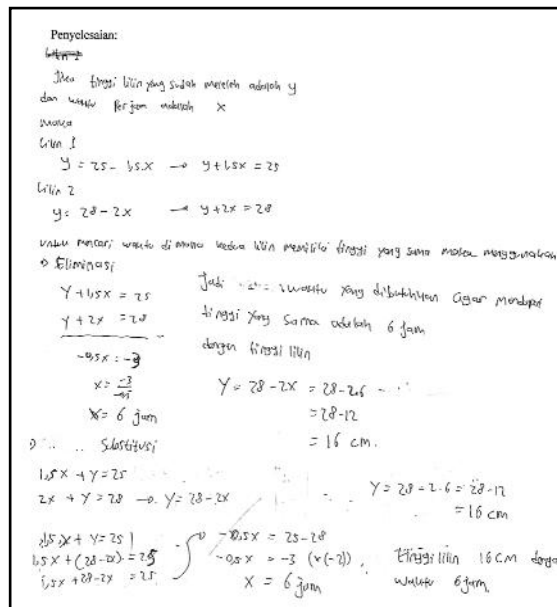 Penyelesaian:
Jika tinggi lilin yang sudah meleleh adalah y
dan waktu perjam adalah x
maka
Lilin 1
y = 25 - 1,5x → y + 1,5x = 25
Lilin 2
y = 28 - 2x → y + 2x = 28
untuk mencari waktu di mana kedua lilin memiliki tinggi yang sama maka menggunakan
Eliminasi
y + 1,5x = 25
y + 2x = 28
-0,5x = -3
x = -3/-0,5
x = 6 jam
Jadi waktu yang dibutuhkan agar mendapat
tinggi yang sama adalah 6 jam
dengan tinggi lilin
Y = 28 - 2x = 28 - 2.6
= 28 - 12
= 16 cm.
Substitusi
1,5x + y = 25
2x + y = 28 → y = 28 - 2x
1,5x + y = 25
1,5x + (28 - 2x) = 25
1,5x + 28 - 2x = 25
-0,5x = 25 - 28
-0,5x = -3 (x(-2))
x = 6 jam
Y = 28 - 2.6 = 28 - 12
= 16 cm
tinggi lilin 16 cm
waktu 6 jam.